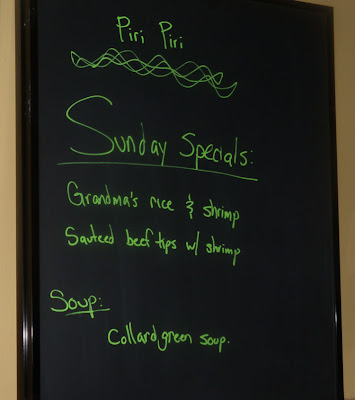 Piri Piri
Sunday Specials:
Grandma's rice & shrimp
Sauteed beef tips w/ shrimp
Soup:
Collard green soup.